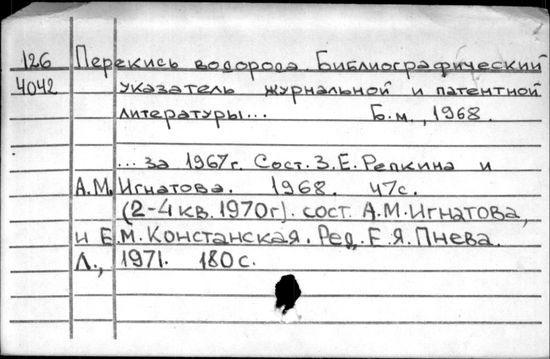 126 Перекись водорода. Библиографический
4042 указатель журнальной и патентной
литературы... Б.м., 1968.
... за 1967г. Сост. З.Е. Репкина и
А.М. Игнатова. 1968. 47с.
(2-4 кв. 1970г). сост. А.М. Игнатова,
и Е.М. Констанская. Ред. Е.Я. Пнева.
Л., 1971. 180с.